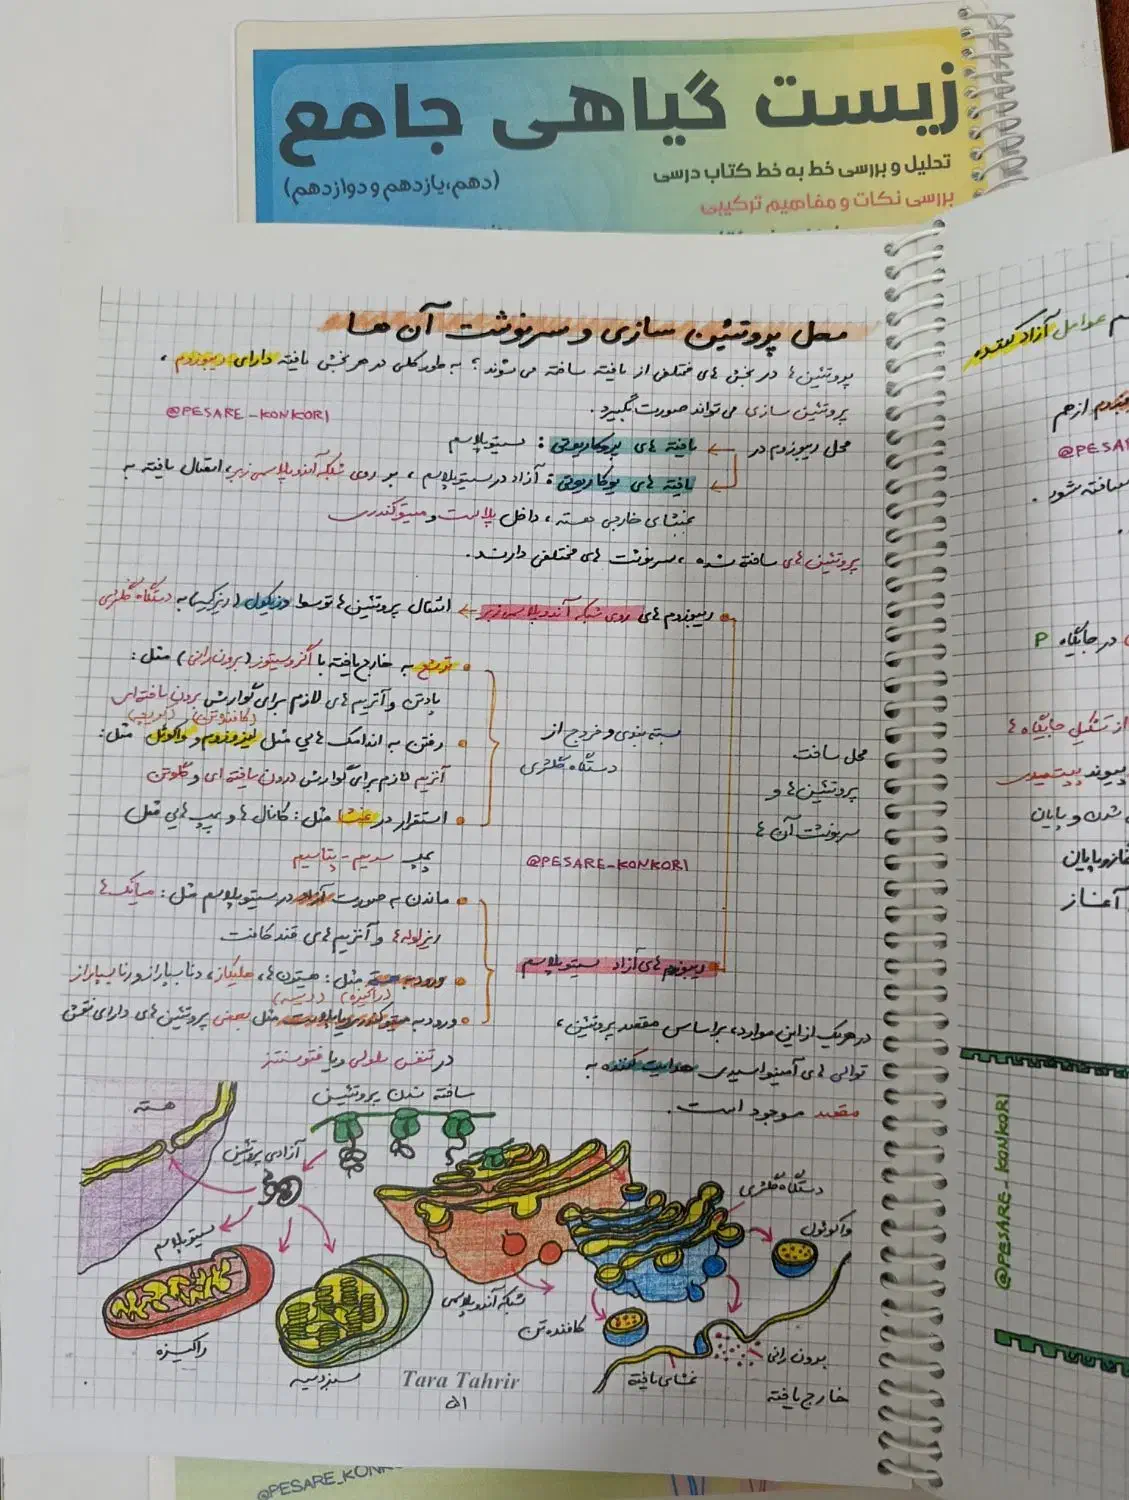 زیست گیاهی جامع
تحلیل و بررسی خط به خط کتاب درسی
(دهم، یازدهم و دوازدهم)
بررسی نکات و مفاهیم ترکیبی
محل پروتئین سازی و سرنوشت آن ها
پروتئین ها در بخش های مختلفی از یافته ساخته می شوند؛ به طور کلی در هر بخش یافته دارای ریبوزوم،
پروتئین سازی می تواند صورت بگیرد.
@PESARE_KONKORI
محل ریبوزوم در ← یافته های پروکاریوتی: سیتوپلاسم
← یافته های یوکاریوتی: آزاد در سیتوپلاسم، بر روی شبکه آندوپلاسمی زبر، اتصال یافته به
غشای خارجی هسته، داخل پلاست و میتوکندری
پروتئین های ساخته شده، سرنوشت های مختلفی دارند.
ریبوزوم های روی شبکه آندوپلاسمی زبر ← انتقال پروتئین ها توسط وزیکول (ریزکیسه) به دستگاه گلژی
محل ساخت
پروتئین ها و
سرنوشت آن ها
بسته بندی و خروج از
دستگاه گلژی
ترشح به خارج یافته با اگزوسیتوز (برون رانی) مثل:
پادتن و آنزیم های لازم برای گوارش برون یافته ای
(کافنده تن)
رفتن به اندامک هایی مثل لیزوزوم و واکوئل مثل:
آنزیم لازم برای گوارش درون یافته ای و گلوتن
استقرار در غشا مثل: کانال ها و پمپ هایی مثل
پمپ سدیم - پتاسیم
@PESARE_KONKORI
ریبوزوم های آزاد سیتوپلاسم
ماندن به صورت آزاد در سیتوپلاسم مثل:
ریزلوله ها و آنزیم های قندکافت
ورود به هسته مثل: هیستون ها، هلیکاز، دنابسپاراز و رنابسپاراز
(راکیزه) (دیسه)
ورود به میتوکندری یا پلاست مثل بعضی پروتئین های دارای نقش
در تنفس سلولی و یا فتوسنتز
در هریک از این موارد، براساس مقصد پروتئین،
توالی های آمینواسیدی هدایت کننده به
مقصد موجود است.
ساخته شدن پروتئین
هسته
آزادی پروتئین
سیتوپلاسم
راکیزه
سبزدیسه
شبکه آندوپلاسمی
دستگاه گلژی
واکوئول
کافنده تن
برون رانی
غشای یافته
خارج یافته
Tara Tahrir
۵۱
عوامل آزاد کننده
@PESAR
در جایگاه P
از تشکیل جایگاه ها
پیوند پپتیدی
شدن و پایان
آغاز
@PESARE_KONKORI
@PESARE_KONK